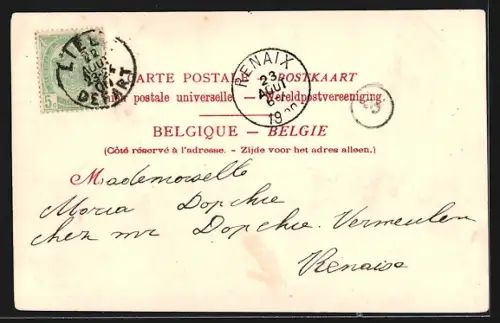 LIE
22
AOUT
DEPART
5c
RENAIX
23
AOUT
19
CARTE POSTALE — POSTKAART
postale universelle. — Wereldpostvereeniging.
BELGIQUE — BELGIË
(Côté réservé à l'adresse. - Zijde voor het adres alleen.)
Mademoiselle
Maria Dopchie
chez mr Dopchie. Vermeulen
Renaix